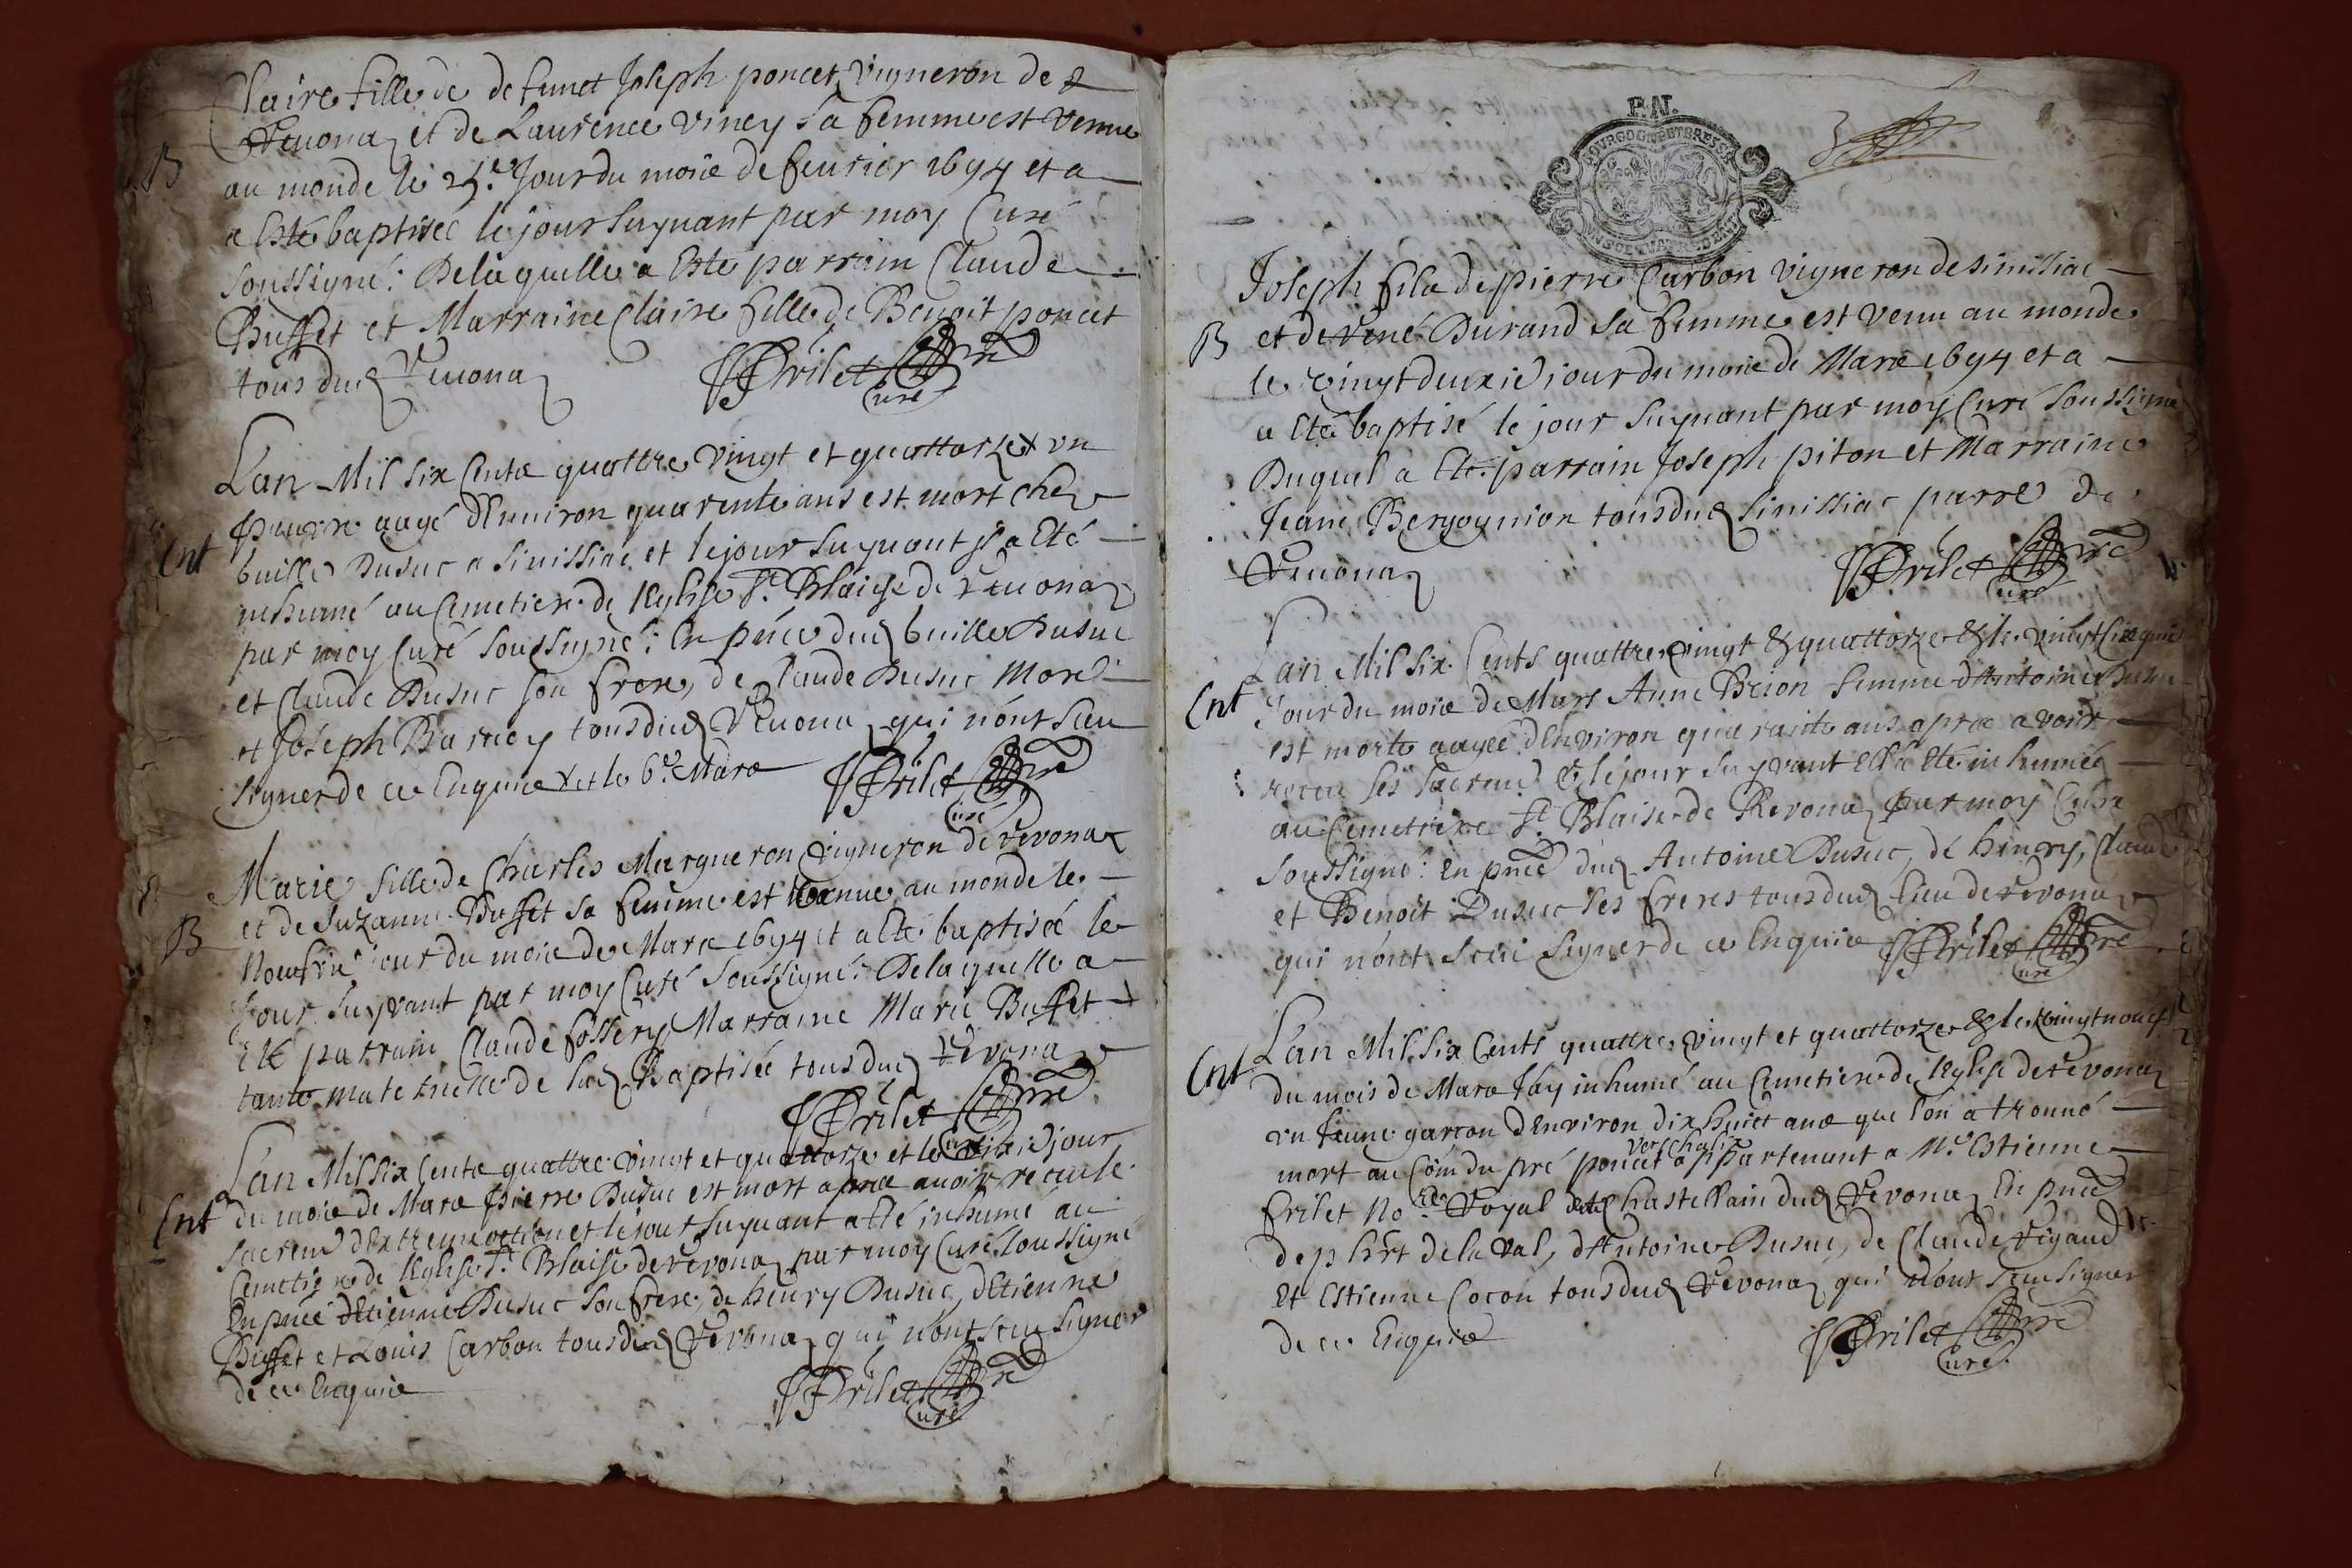 Claire fille de defunct Joseph poncet vigneron de
Reuonaz et de Laurence viney sa femme est venue
B
au monde le 25e Jour du mois de feurier 1694 et a
a esté baptisée le jour suyuant par moy Curé
soussigné: De laquelle a Esté parrain Claude
Buffet et Marraine Claire fille de Benoit poncet
tous dud Reuonaz
FFrilet pre
Curé
Lan Mil six Cents quattre vingt et quattorze x un
pauure aagé d'Enuiron quarente ans est mort chez
Ent
buille Dusuc a Sinissiac et le jour suyuant il a Eté
inhumé au Cemetiere de l'Eglise St Blaise de Reuonaz
par moy Curé soussigné: En pnce dud buille Dusuc
et Claude Dusuc son frere, de Claude Dusuc Morel
et Joseph Barney tous dud Reuonaz qui n'ont sceu
signer de ce Enquis x et le 6e Mars
FFrilet pre
Curé
Marie fille de Charles Margueron vigneron de Revonaz
et de Suzanne Buffet sa femme est venue au monde le
B
Noufvie jour du mois de Mars 1694 et a Eté baptisée le
Jour suyvant par moy Curé soussigné: De laquelle a
Eté parrain Claude fossery Marraine Marie Buffet
tante maternelle de lad Baptisée tous dud Revonaz
FFrilet pre
Curé
Lan Mil six Cents quattre vingt et quattorze et le jour
Ent
du mois de Mars pierre Dusuc est mort apres auoir receu le
sacremt d'Extreme onction et le jour suyuant a Eté inhumé au
Cemetiere de l'Eglise St Blaise de Revonaz par moy Curé soussigné
En pnce d'Etienne Dusuc son frere, de henry Dusuc, d'Etienne
Buffet et Louis Carbon tous dud Revonaz qui n'ont sceu signer
de ce Enquis
FFrilet pre
Curé
P.N.
BOURGOGNE ET BRESSE
3
Joseph fils de pierre Carbon vigneron de Sinissiac
B
et de René Durand sa femme est venu au monde
le vingt deuxie jour du mois de Mars 1694 et a
a Eté baptisé le jour suyuant par moy Curé soussigné
Duquel a Eté parrain Joseph piton et Marraine
Jeane Bergounion tous dud Sinissiac parre de
Reuonaz
FFrilet pre
Curé
Lan Mil six Cents quattre vingt & quattorze & le vingt
Ent
Jour du mois de Mars Anne Brion femme d'Antoine Dusuc
est morte aagée d'Environ quarante ans apres avoir
receu ses sacremts & le jour suyvant Ell'a Eté inhumée
au Cemetiere St Blaise de Revonaz par moy Curé
soussigné: En pnce dud Antoine Dusuc, de henry, Claude
et Benoit Dusuc ses freres tous dud lieu de Revonaz
qui n'ont sceu signer de ce Enquis
FFrilet pre
Curé
Lan Mil six Cents quattre vingt et quattorze & le vingt nouf
Ent
du mois de Mars J'ay inhumé au Cemetiere de l'Eglise de Revonaz
un Jeune garcon d'Environ dix huict ans que l'on a trouué
vers Chalix
mort au Coin du pré poncet appartenant a Mr Estienne
frilet Nore Royal et Chastellain dud Revonaz En pnce
de phbrt de la Val, d'Antoine Dusuc, de Claude Rigaud
Et Estienne Cocon tous dud Revonaz qui n'ont sceu signer
de ce Enquis
FFrilet pre
Curé.